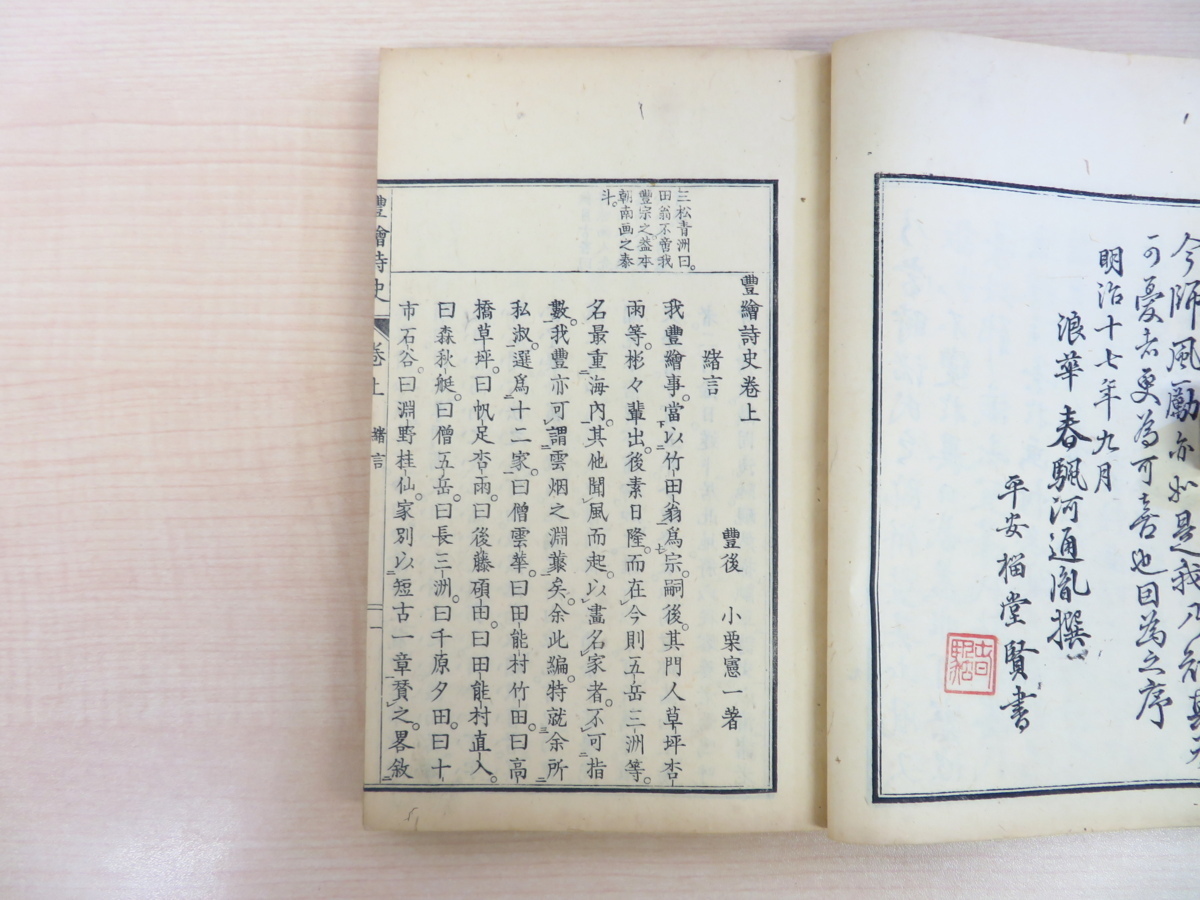 今師風勵亦如是我
可憂者更為可喜也因為之序
明治十七年九月
浪華 春颿河通胤撰
平安 榴堂賢書
三松青洲曰。
田翁不啻我
豐宗之蓋本
朝南画之泰
斗。
豐繪詩史卷上
豐後 小栗憲一著
緒言
我豐繪事。當以竹田翁爲宗。嗣後其門人草坪杏
雨等。彬々輩出。後素日隆。而在今則五岳三洲等。
名最重海內。其他聞風而起。以畫名家者。不可指
數。我豐亦可謂雲烟之淵叢矣。余此編。特就余所
私淑。選爲十二家。曰僧雲華。曰田能村竹田。曰高
橋草坪。曰帆足杏雨。曰後藤碩田。曰田能村直入。
曰森秋艇。曰僧五岳。曰長三洲。曰千原夕田。曰十
市石谷。曰淵野桂仙。家別以短古一章贊之。畧敘
豐繪詩史 卷上 緒言 一